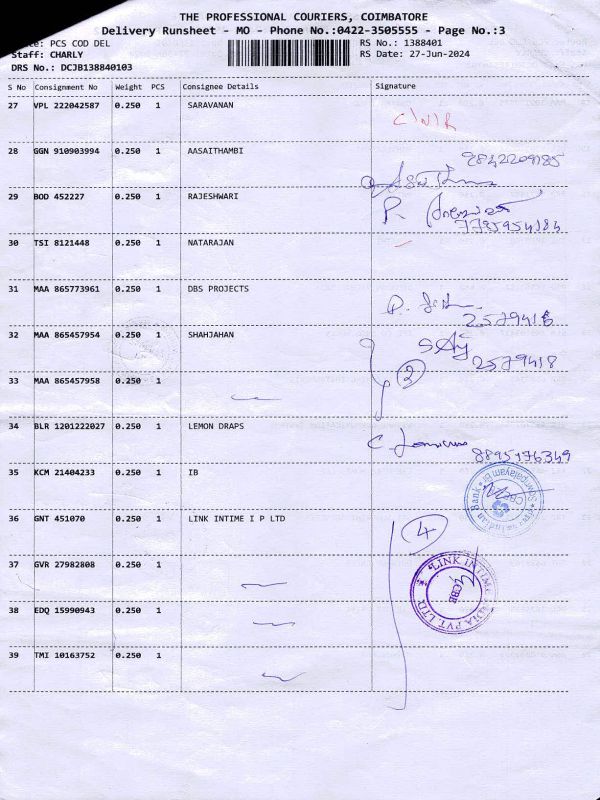 THE PROFESSIONAL COURIERS, COIMBATORE
Delivery Runsheet - MO - Phone No.:0422-3505555 - Page No.:3
PCS COD DEL
RS No.: 1388401
Staff: CHARLY
RS Date: 27-Jun-2024
DRS No.: DCJB138840103
S No Consignment No Weight PCS Consignee Details Signature
27 VPL 222042587 0.250 1 SARAVANAN
C/N/R
28 GGN 910903994 0.250 1 AASAITHAMBI
9842209185
29 BOD 452227 0.250 1 RAJESHWARI
P.
30 TSI 8121448 0.250 1 NATARAJAN
31 MAA 865773961 0.250 1 DBS PROJECTS
2579418
32 MAA 865457954 0.250 1 SHAHJAHAN
2579418
2
33 MAA 865457958 0.250 1
34 BLR 1201222027 0.250 1 LEMON DRAPS
8895176349
35 KCM 21404233 0.250 1 IB
Indian Bank
36 GNT 451070 0.250 1 LINK INTIME I P LTD
4
37 GVR 27982808 0.250 1
LINK INTIME INDIA PVT. LTD.
CBE
38 EDQ 15990943 0.250 1
39 TMI 10163752 0.250 1